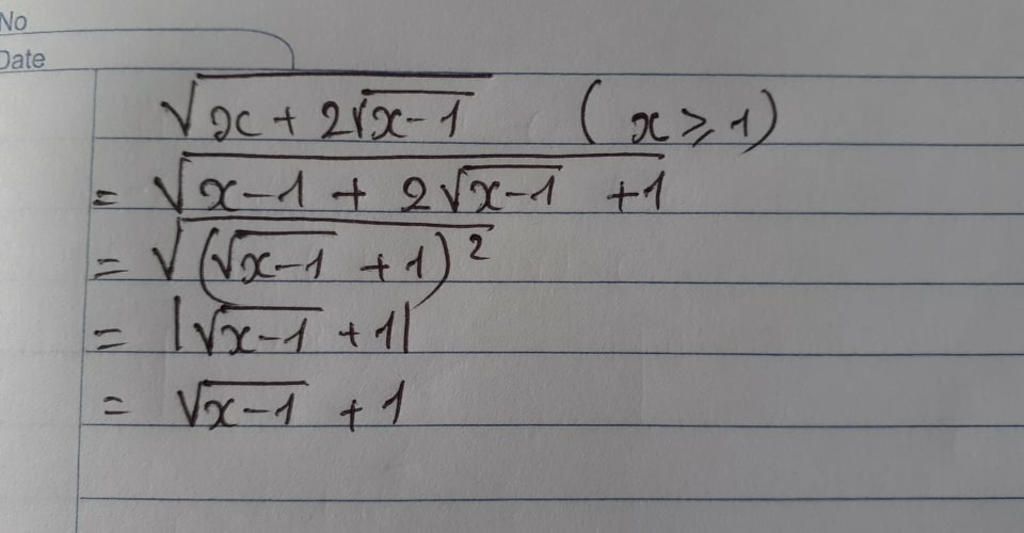 No
Date
√(x + 2√(x-1)) (x ⩾ 1)
= √(x-1 + 2√(x-1) +1)
= √((√(x-1) +1)²)
= |√(x-1) +1|
= √(x-1) + 1